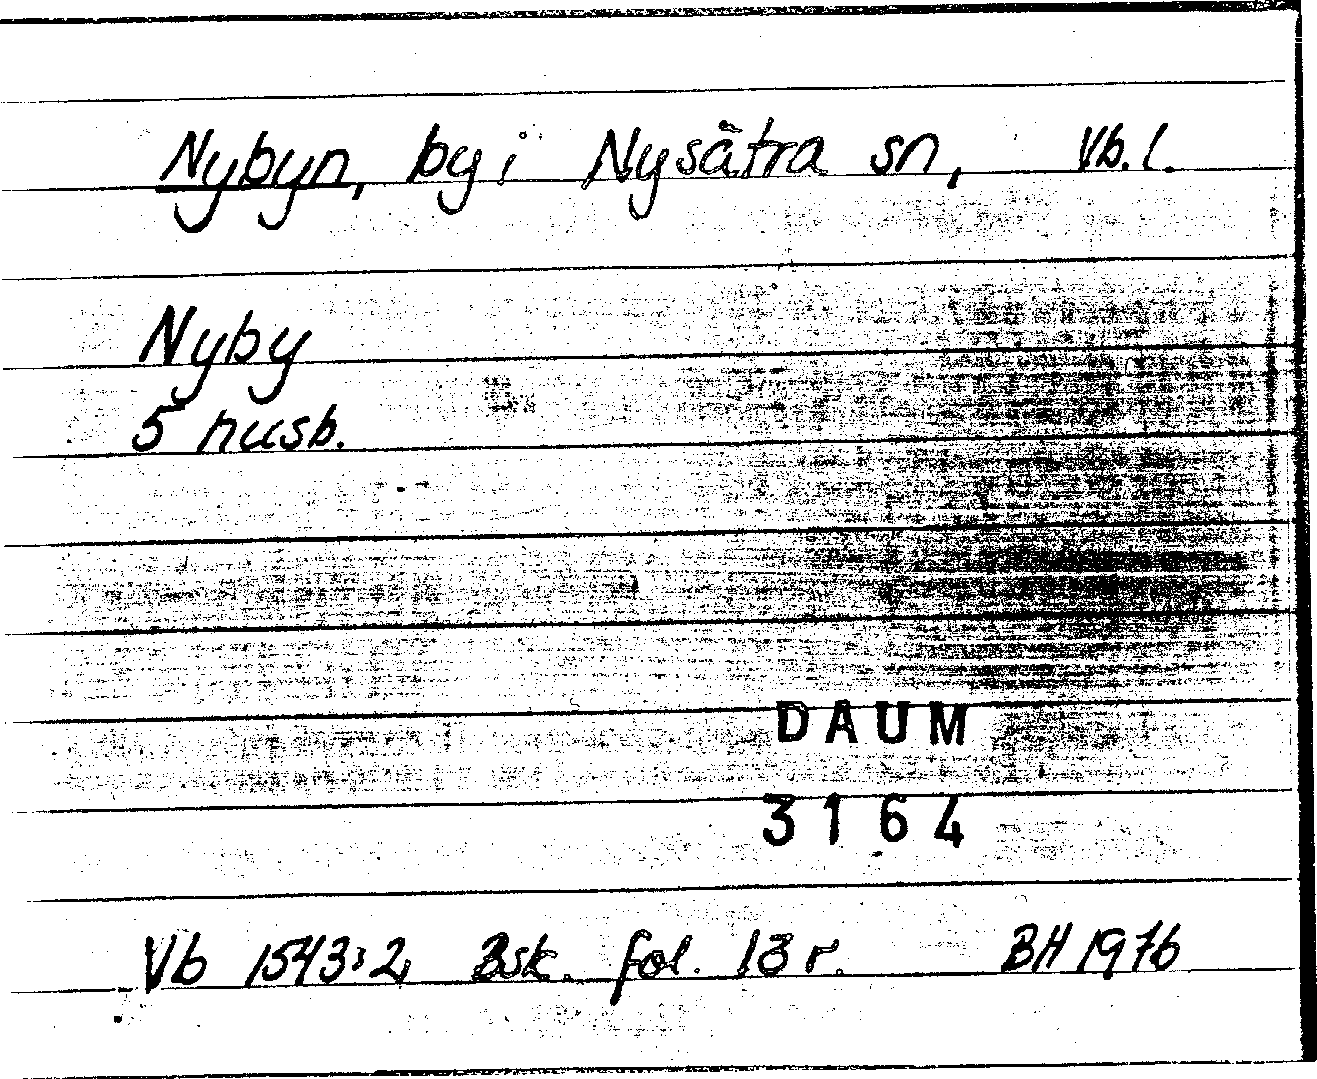 Nybyn, by i Nysätra sn, Vb. l.
Nyby
5 husb.
DAUM
3164
Vb 1543:2, Bsk. fol. 13 r. BH 1976